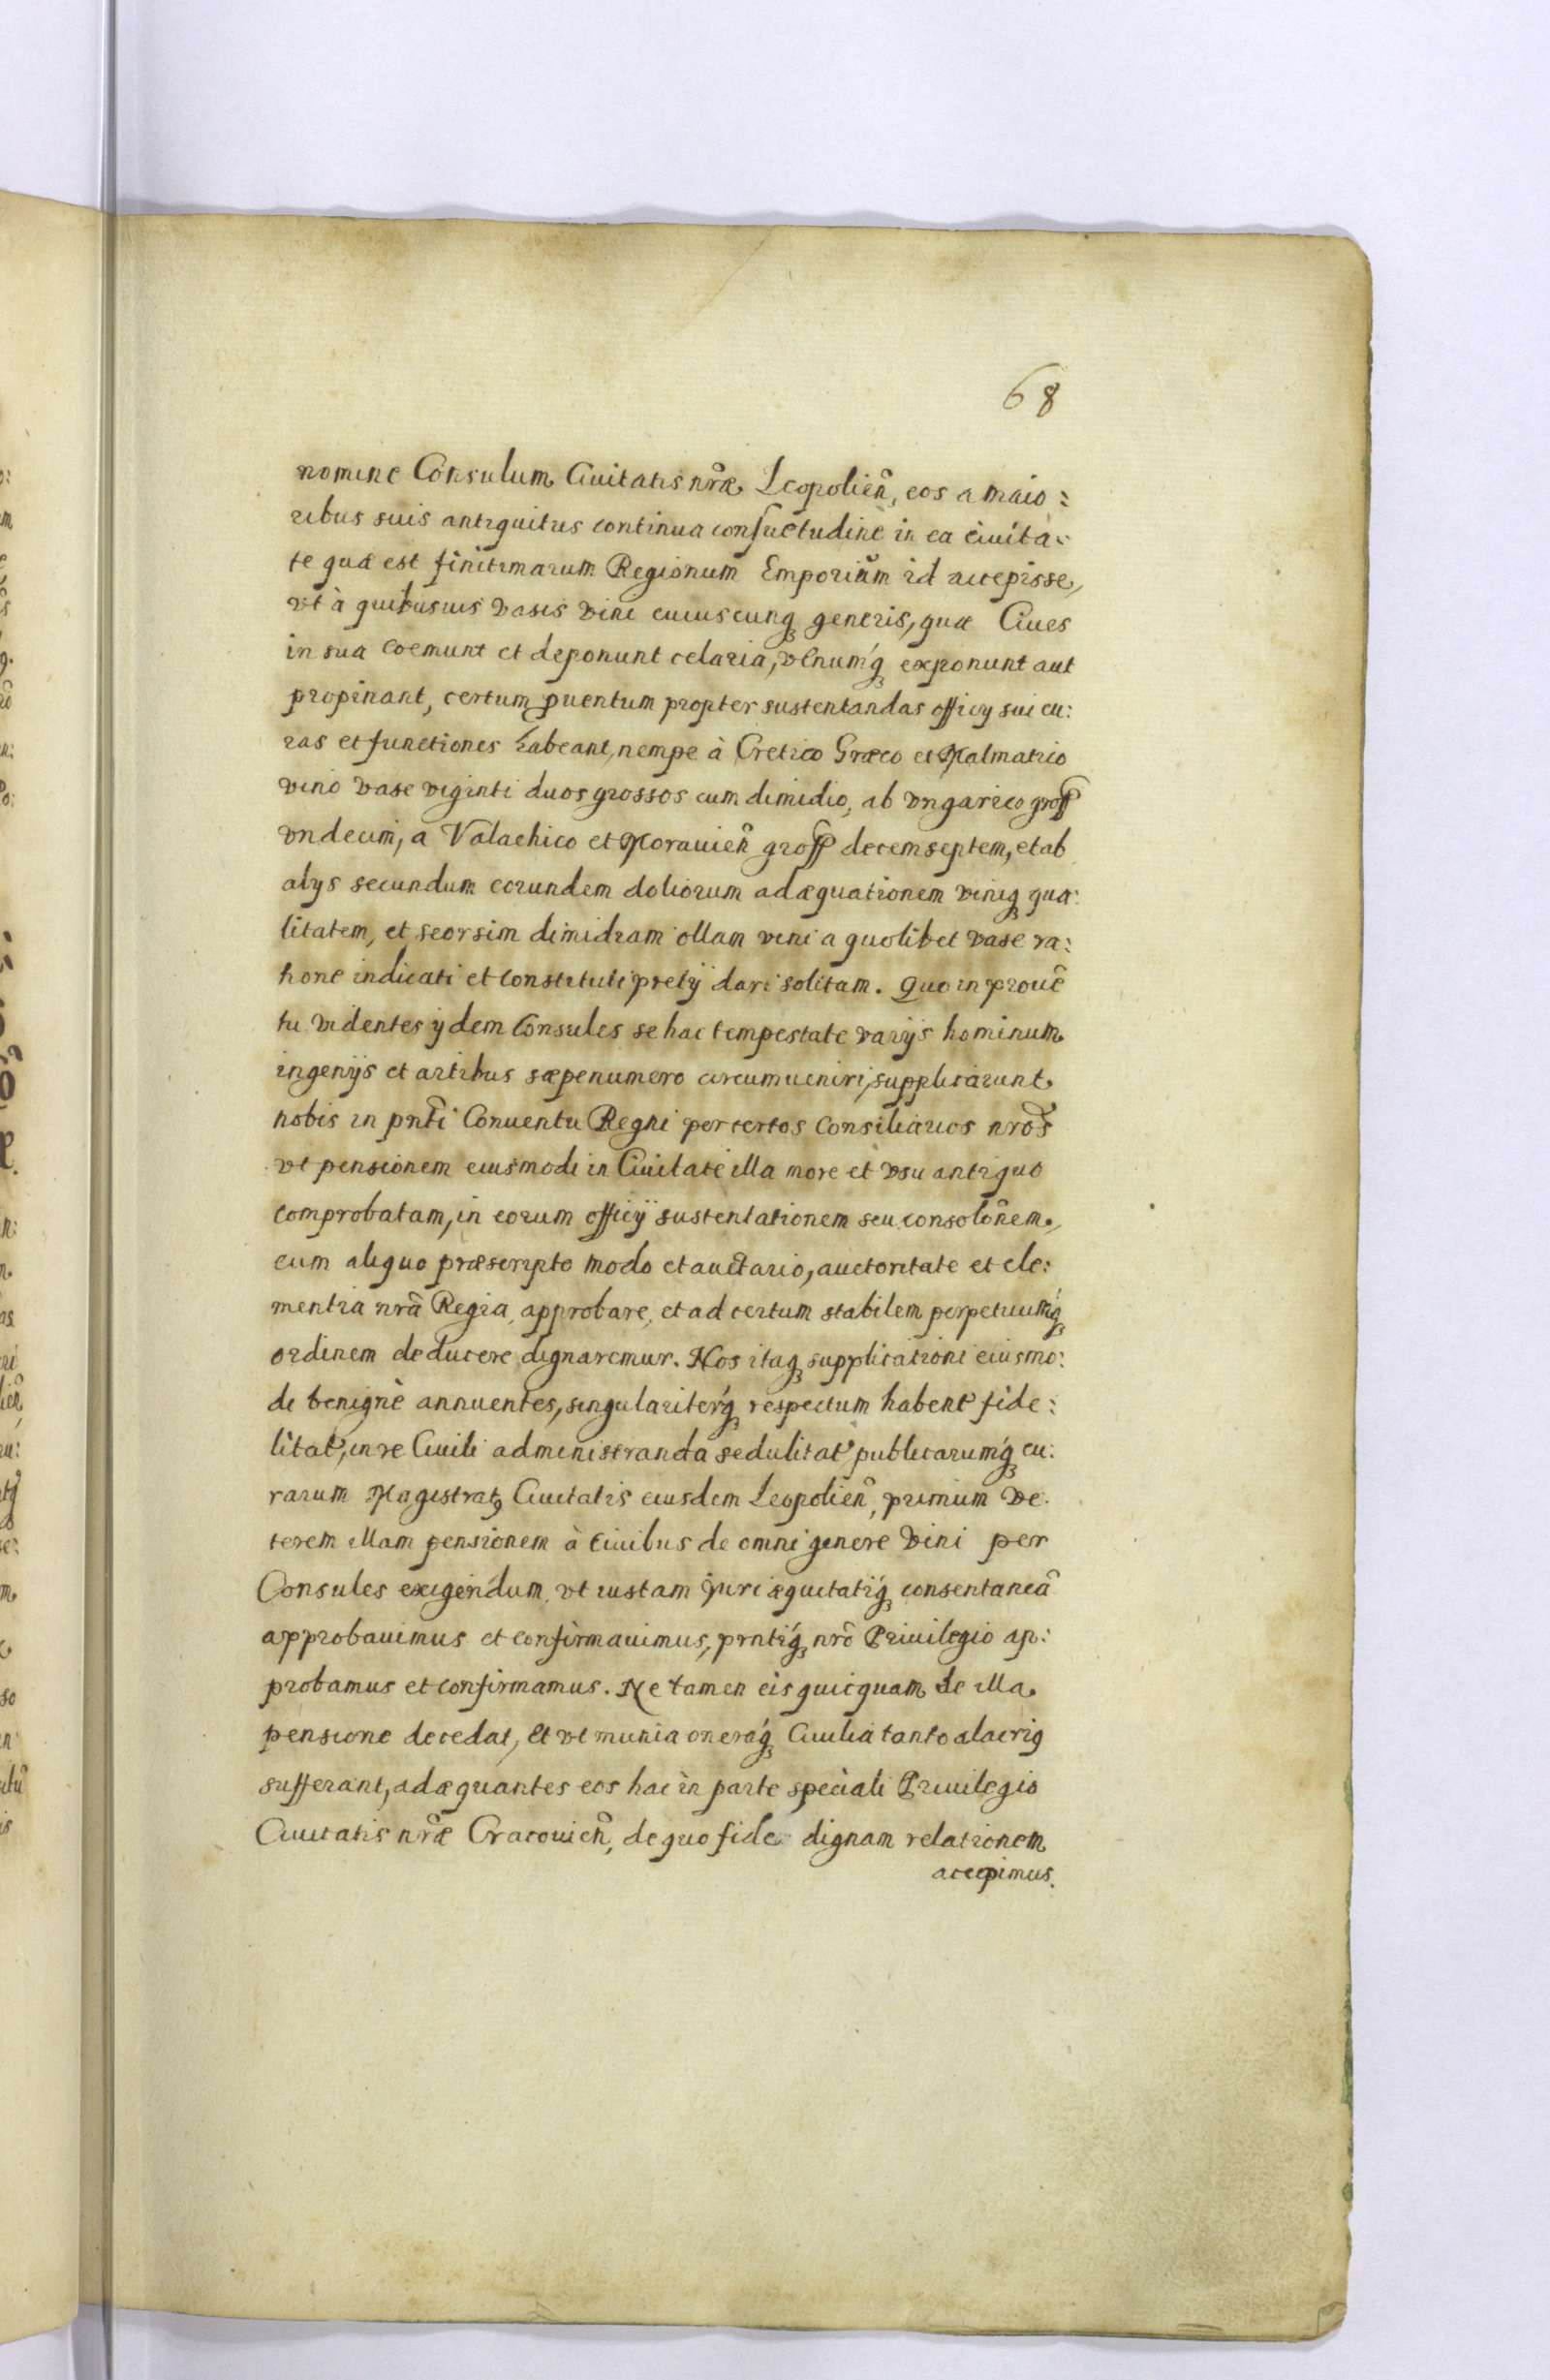 68
nomine Consulum Ciuitatis nr̃æ Leopolien̂, eos a maio:
ribus suis antiquitus continua consuetudine in ea ciuita:
te quæ est finitimarum Regionum Emporium id accepisse,
vt à quibusuis vasis vini cuiuscunq̃ generis, quæ Ciues
in sua coemunt et deponunt celaria, venumq́ exponunt aut
propinant, certum ꝓuentum propter sustentandas officy sui cu:
ras et functiones habeant, nempe à Cretico Græco et Malmatico
vino vase viginti duos grossos cum dimidio, ab vngarico gross̃
vndecim, a Valachico et Morauien̂ gross̃ decem septem, et ab
alys secundum eorundem doliorum adæquationem viniq̃ qua:
litatem, et seorsim dimidiam ollam vini a quolibet vase ra:
tione indicati et constituti pretÿ dari solitam. Quo in prouẽ
tu videntes ydem Consules se hac tempestate varÿs hominum
ingenÿs et artibus sæpenumero circumueniri, supplicarunt
nobis in pn̂ti Conuentu Regni per certos Consiliarios nr̃os
vt pensionem eiusmodi in Ciuitate illa more et vsu antiquo
comprobatam, in eorum officÿ sustentationem seu consolõnem,
cum aliquo præscripto modo et auctario, auctoritate et cle:
mentia nrâ Regia, approbare, et ad certum stabilem perpetuumq́
ordinem deducere dignaremur. Nos itaq̃ supplicationi eiusmo:
di benignè annuentes, singulariterq́ respectum habent̃ fide:
litat̃, in re Ciuili administranda sedulitat̃ publicarumq́ cu:
rarum Magistratꝰ Ciuitatis eiusdem Leopolien̂, primum ve:
terem illam pensionem à Ciuibus de omni genere vini per
Consules exigendum, vt iustam Juri æquitatiq́ consentaneâ
approbauimus et confirmauimus, pn̂tiq́ nrõ Priuilegio ap:
probamus et confirmamus. Ne tamen eis quicquam de illa
pensione decedat, Et vt munia oneraq́ Ciuilia tanto alacriꝰ
sufferant, adæquantes eos hac in parte speciali Priuilegio
Ciuitatis nr̃æ Cracouien̂, de quo fide dignam relationem
accepimus.